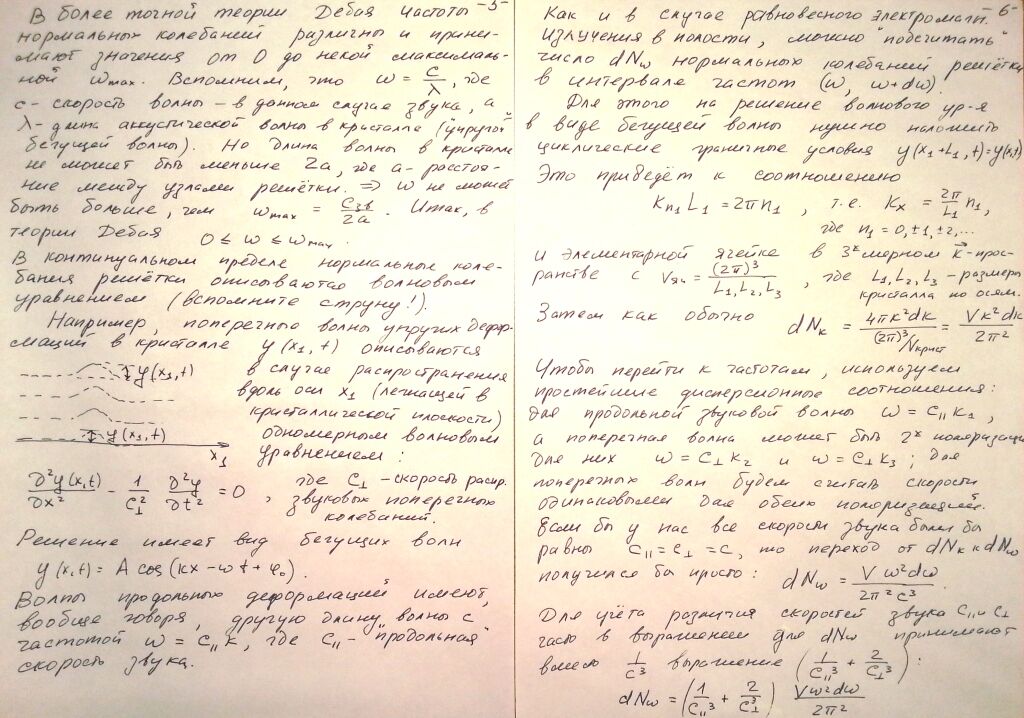 -5-
В более точной теории Дебая частоты
нормальных колебаний различны и прини-
мают значения от 0 до некой максималь-
ной ωmax. Вспомним, что ω = c/λ, где
c - скорость волны - в данном случае звука, а
λ - длина аккустической волны в кристалле ("упругой"
бегущей волны). Но длина волны в кристалле
не может быть меньше 2a, где a - расстоя-
ние между узлами решётки. ⇒ ω не может
быть больше, чем ωmax = Cзв/2a. Итак, в
теории Дебая
0 ≤ ω ≤ ωmax.
В континуальном пределе нормальные коле-
бания решётки описываются волновым
уравнением (вспомните струну!).
Например, поперечные волны упругих дефор-
маций в кристалле y(x₁,t) описываются
в случае распространения
вдоль оси x₁ (лежащей в
кристаллической плоскости)
одномерным волновым
уравнением:
y(x₁,t)
y(x₁,t)
x₁
∂²y(x,t)/∂x² - 1/c⊥² ∂²y/∂t² = 0, где c⊥ - скорость распр.
звуковых поперечных
колебаний.
Решение имеет вид бегущих волн
y(x,t) = A cos(kx - ωt + φ₀).
Волны продольных деформаций имеют,
вообще говоря, другую длину волны с
частотой ω = c∥k, где c∥ - "продольная"
скорость звука.
-6-
Как и в случае равновесного электромагн.
излучения в полости, можно "подсчитать"
число dNω нормальных колебаний решётки
в интервале частот (ω, ω+dω).
Для этого на решение волнового ур-я
в виде бегущей волны нужно наложить
циклические граничные условия y(x₁+L₁,t)=y(x₁,t)
Это приведёт к соотношению
Kn₁L₁ = 2πn₁, т.е. Kx = 2π/L₁ n₁,
где n₁ = 0, ±1, ±2,...
и элементарной ячейке в 3ˣмерном k⃗-прос-
ранстве с Vяч = (2π)³/L₁,L₂,L₃, где L₁,L₂,L₃ - размеры
кристалла по осям.
Затем как обычно dNk = 4πk²dk/(2π)³/Vкрист = Vk²dk/2π²
Чтобы перейти к частотам, используем
простейшие дисперсионные соотношения:
для продольной звуковой волны ω = c∥k₁,
а поперечная волна может быть 2ˣ поляризаций
для них ω = c⊥k₂ и ω = c⊥k₃; для
поперечных волн будем считать скорости
одинаковыми для обеих поляризаций.
Если бы у нас все скорости звука были бы
равны c∥ = c⊥ = c, то переход от dNk к dNω
получился бы просто: dNω = Vω²dω/2π²c³.
Для учёта различия скоростей звука c∥ и c⊥
часто в выражении для dNω принимают
вместо 1/c³ выражение (1/c∥³ + 2/c⊥³):
dNω = (1/c∥³ + 2/c⊥³) Vω²dω/2π²